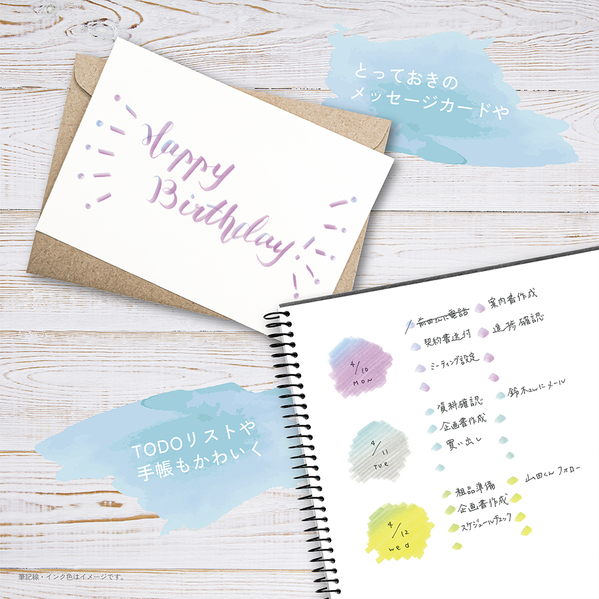 とっておきの
メッセージカードや
Happy
Birthday!
TODOリストや
手帳もかわいく
4/10
MON
案内書作成
契約書送付
進捗確認
ミーティング設定
4/11
TUE
資料確認
鈴木さんにメール
企画書作成
買い出し
4/12
wed
粗品準備
山田くんフォロー
企画書作成
スケジュールチェック
筆記線・インク色はイメージです。